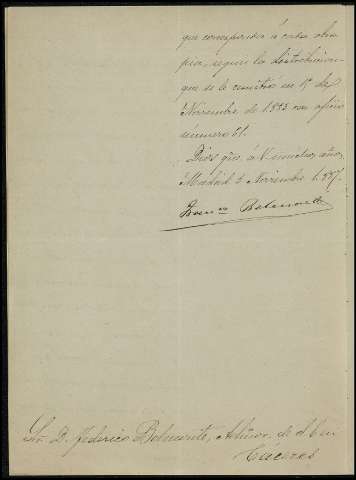 que corresponden á estas obras
pias, segun la distribucion
que se le remitió en 1º de
Noviembre de 1885 con oficio
número 61.
Dios gue. á V. muchos años,
Madrid 2 Noviembre 1887.
Franco Belmonte
Sr. D. Federico Belmonte, Admor. de
Cáceres